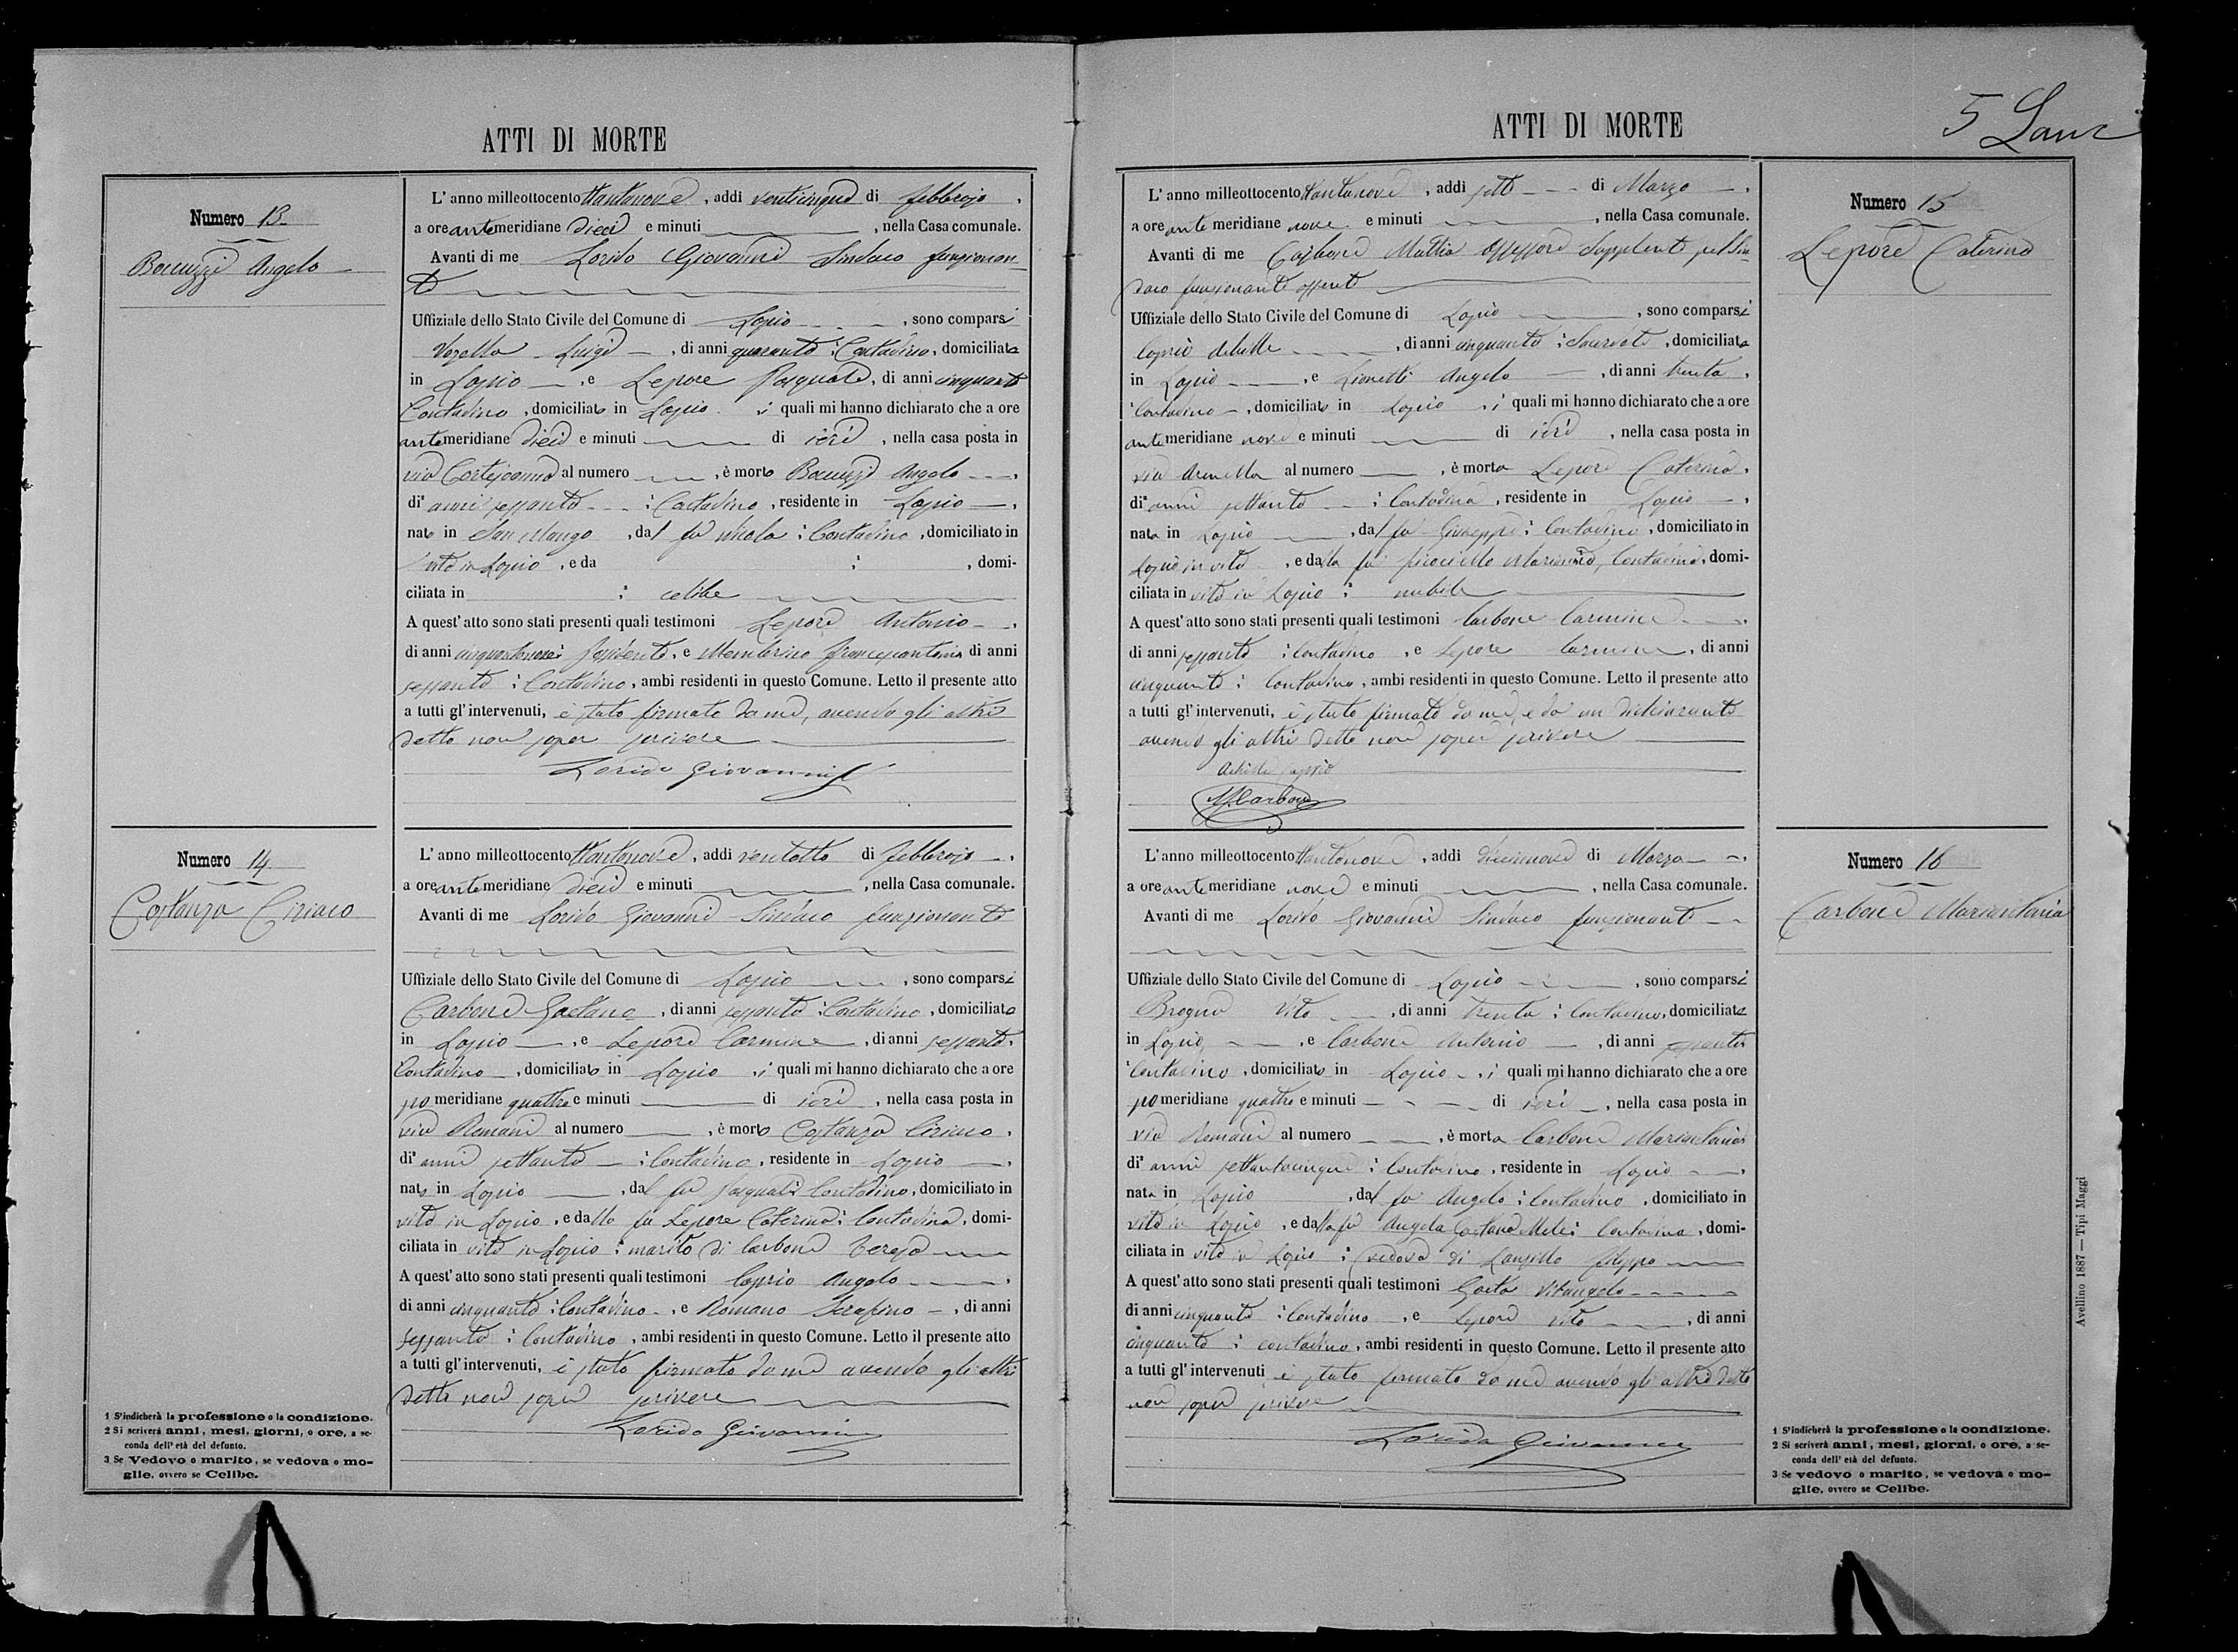 ATTI DI MORTE
Numero 13
Bocuzzi Angelo
L' anno milleottocento ottantanove, addì venticinque di febbrajo,
a ore antemeridiane dieci e minuti, nella Casa comunale.
Avanti di me Lorido Giovanni Sindaco funzionan-
te
Uffiziale dello Stato Civile del Comune di Lapio, sono comparsi
Vozella Luigi, di anni quaranta; Contadino, domiciliato
in Lapio, e Lepore Pasquale, di anni cinquanta
Contadino, domiciliato in Lapio, i quali mi hanno dichiarato che a ore
antemeridiane dieci e minuti di ieri, nella casa posta in
via al numero, è morto Bocuzzi Angelo,
di anni sessanta; Contadino, residente in Lapio,
nato in San Mango, dal fu Nicola; Contadino, domiciliato in
vita in Lapio, e da ; , domi-
ciliata in ; celibe
A quest' atto sono stati presenti quali testimoni Lepore Antonio,
di anni cinquantanove; Possidente, e Membrino Francescantonio di anni
sessanta; Contadino, ambi residenti in questo Comune. Letto il presente atto
a tutti gl' intervenuti, è stato firmato da me, avendo gli altri
detto non saper scrivere
Lorido Giovanni
Numero 14
Costanza Ciriaco
L' anno milleottocento ottantanove, addì ventotto di febbrajo,
a ore antemeridiane dieci e minuti, nella Casa comunale.
Avanti di me Lorido Giovanni Sindaco funzionante
Uffiziale dello Stato Civile del Comune di Lapio, sono comparsi
Carbone Gaetano, di anni sessanta; Contadino, domiciliato
in Lapio, e Lepore Carmine, di anni sessanta,
Contadino, domiciliato in Lapio, i quali mi hanno dichiarato che a ore
pomeridiane quattro e minuti di ieri, nella casa posta in
via Romani al numero, è morto Costanza Ciriaco,
di anni settanta; Contadino, residente in Lapio,
nato in Lapio, dal fu Pasquale Contadino, domiciliato in
vita in Lapio, e dalla fu Lepore Caterina; Contadina, domi-
ciliata in vita in Lapio; marito di Carbone Teresa
A quest' atto sono stati presenti quali testimoni Caprio Angelo,
di anni cinquanta; Contadino, e Romano Serafino, di anni
sessanta; Contadino, ambi residenti in questo Comune. Letto il presente atto
a tutti gl' intervenuti, è stato firmato da me avendo gli altri
detto non saper scrivere
Lorido Giovanni
1 S'indicherà la professione o la condizione.
2 Si scriverà anni, mesi, giorni, o ore, a se-
conda dell' età del defunto.
3 Se Vedovo o marito, se vedova o mo-
glie, ovvero se Celibe.
ATTI DI MORTE
5
Numero 15
Lepore Caterina
L' anno milleottocento ottantanove, addì sette di Marzo,
a ore antemeridiane nove e minuti, nella Casa comunale.
Avanti di me Carbone Mattia Assessore Supplente pel Sin-
daco funzionante assente
Uffiziale dello Stato Civile del Comune di Lapio, sono comparsi
Caprio Achille, di anni cinquanta; Sacerdote, domiciliato
in Lapio, e Lionetti Angelo, di anni trenta,
Contadino, domiciliato in Lapio, i quali mi hanno dichiarato che a ore
antemeridiane nove e minuti di ieri, nella casa posta in
via Arenella al numero, è morta Lepore Caterina,
di anni settanta; Contadina, residente in Lapio,
nata in Lapio, dal fu Giuseppe; Contadino, domiciliato in
Lapio in vita, e dalla fu Contadina, domi-
ciliata in vita in Lapio; nubile
A quest' atto sono stati presenti quali testimoni Carbone Carmine,
di anni sessanta; Contadino, e Lepore Carmine, di anni
cinquanta; Contadino, ambi residenti in questo Comune. Letto il presente atto
a tutti gl' intervenuti, è stato firmato da me, e da un dichiarante
avendo gli altri detto non saper scrivere
Achille Caprio
M. Carbone
Numero 16
Carbone Mariantonia
L' anno milleottocento ottantanove, addì diecinove di Marzo,
a ore antemeridiane nove e minuti, nella Casa comunale.
Avanti di me Lorido Giovanni Sindaco funzionante
Uffiziale dello Stato Civile del Comune di Lapio, sono comparsi
Brogna Vito, di anni trenta; Contadino, domiciliato
in Lapio, e Carbone Antonio, di anni sessanta
Contadino, domiciliato in Lapio, i quali mi hanno dichiarato che a ore
pomeridiane quattro e minuti di ieri, nella casa posta in
via Romani al numero, è morta Carbone Mariantonia
di anni settantacinque; Contadina, residente in Lapio,
nata in Lapio, dal fu Angelo; Contadino, domiciliato in
vita in Lapio, e dalla fu Angela Contadina, domi-
ciliata in vita in Lapio; vedova di Filippo
A quest' atto sono stati presenti quali testimoni Gaeta Vitangelo
di anni cinquanta; Contadino, e Lepore Vito, di anni
cinquanta; contadino, ambi residenti in questo Comune. Letto il presente atto
a tutti gl' intervenuti è stato firmato da me avendo gli altri detto
non saper scrivere
Lorido Giovanni
1 S'indicherà la professione o la condizione.
2 Si scriverà anni, mesi, giorni, o ore, a se-
conda dell' età del defunto.
3 Se vedovo o marito, se vedova o mo-
glie, ovvero se Celibe.
Avellino 1887 — Tipi Maggi